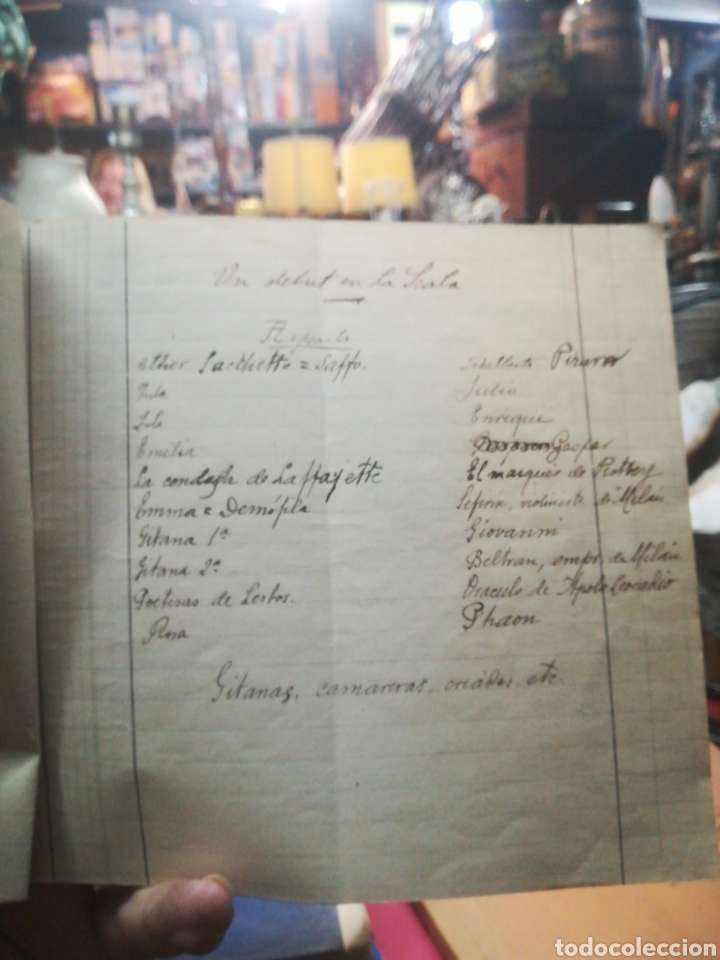 Un debut en la Scala
Reparto
Esther Sacchetto = Saffo.
Julia
Lila
Emilia
La condesa de Laffayette
Emma = Demófila
Gitana 1ª
Gitana 2ª
Poetisas de Lesbos.
Rosa
Pizarro
Julio
Enrique
Gaspar
El marqués de
violinista de Milán
Giovanni
Beltran, empr. de Milán
Oraculo de Apolo Leocadio
Phaon
Gitanas, camareras, criados etc.
todocoleccion